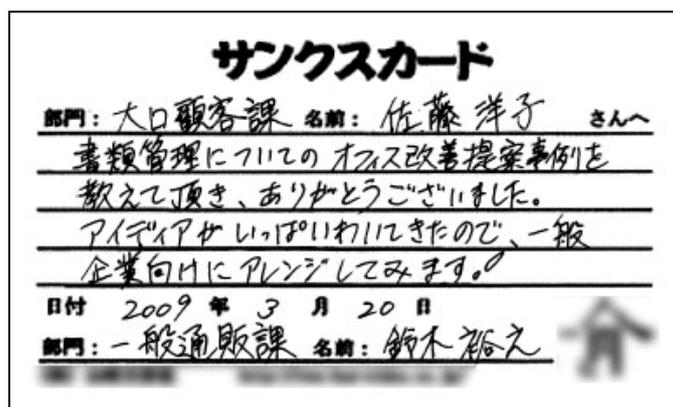 サンクスカード
部門：大口顧客課 名前：佐藤洋子 さんへ
書類管理についてのオフィス改善提案事例を
教えて頂き、ありがとうございました。
アイディアがいっぱいわいてきたので、一般
企業向けにアレンジしてみます。
日付 2009 年 3 月 20 日
部門：一般通販課 名前：鈴木裕之